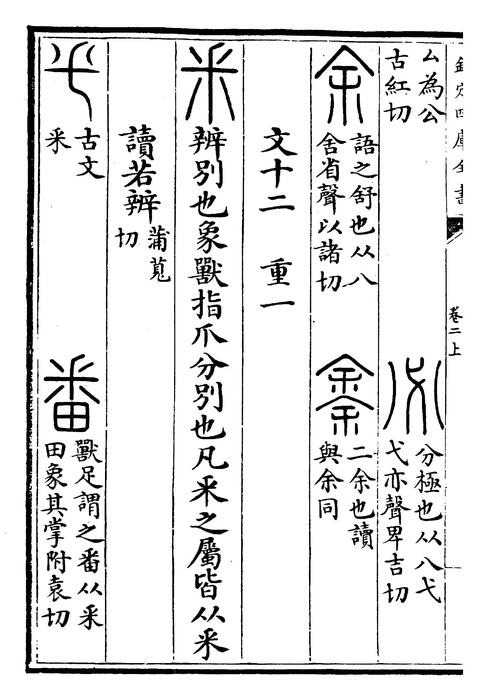 欽定四庫全書
卷二上
厶為公
古紅切
必
分極也从八弋
弋亦聲卑吉切
余
語之舒也从八
舍省聲以諸切
𠎳
二余也讀
與余同
文十二 重一
釆 辨別也象獸指爪分別也凡釆之屬皆从釆
讀若辨 蒲莧
切
古文
釆
番
獸足謂之番从釆
田象其掌附袁切